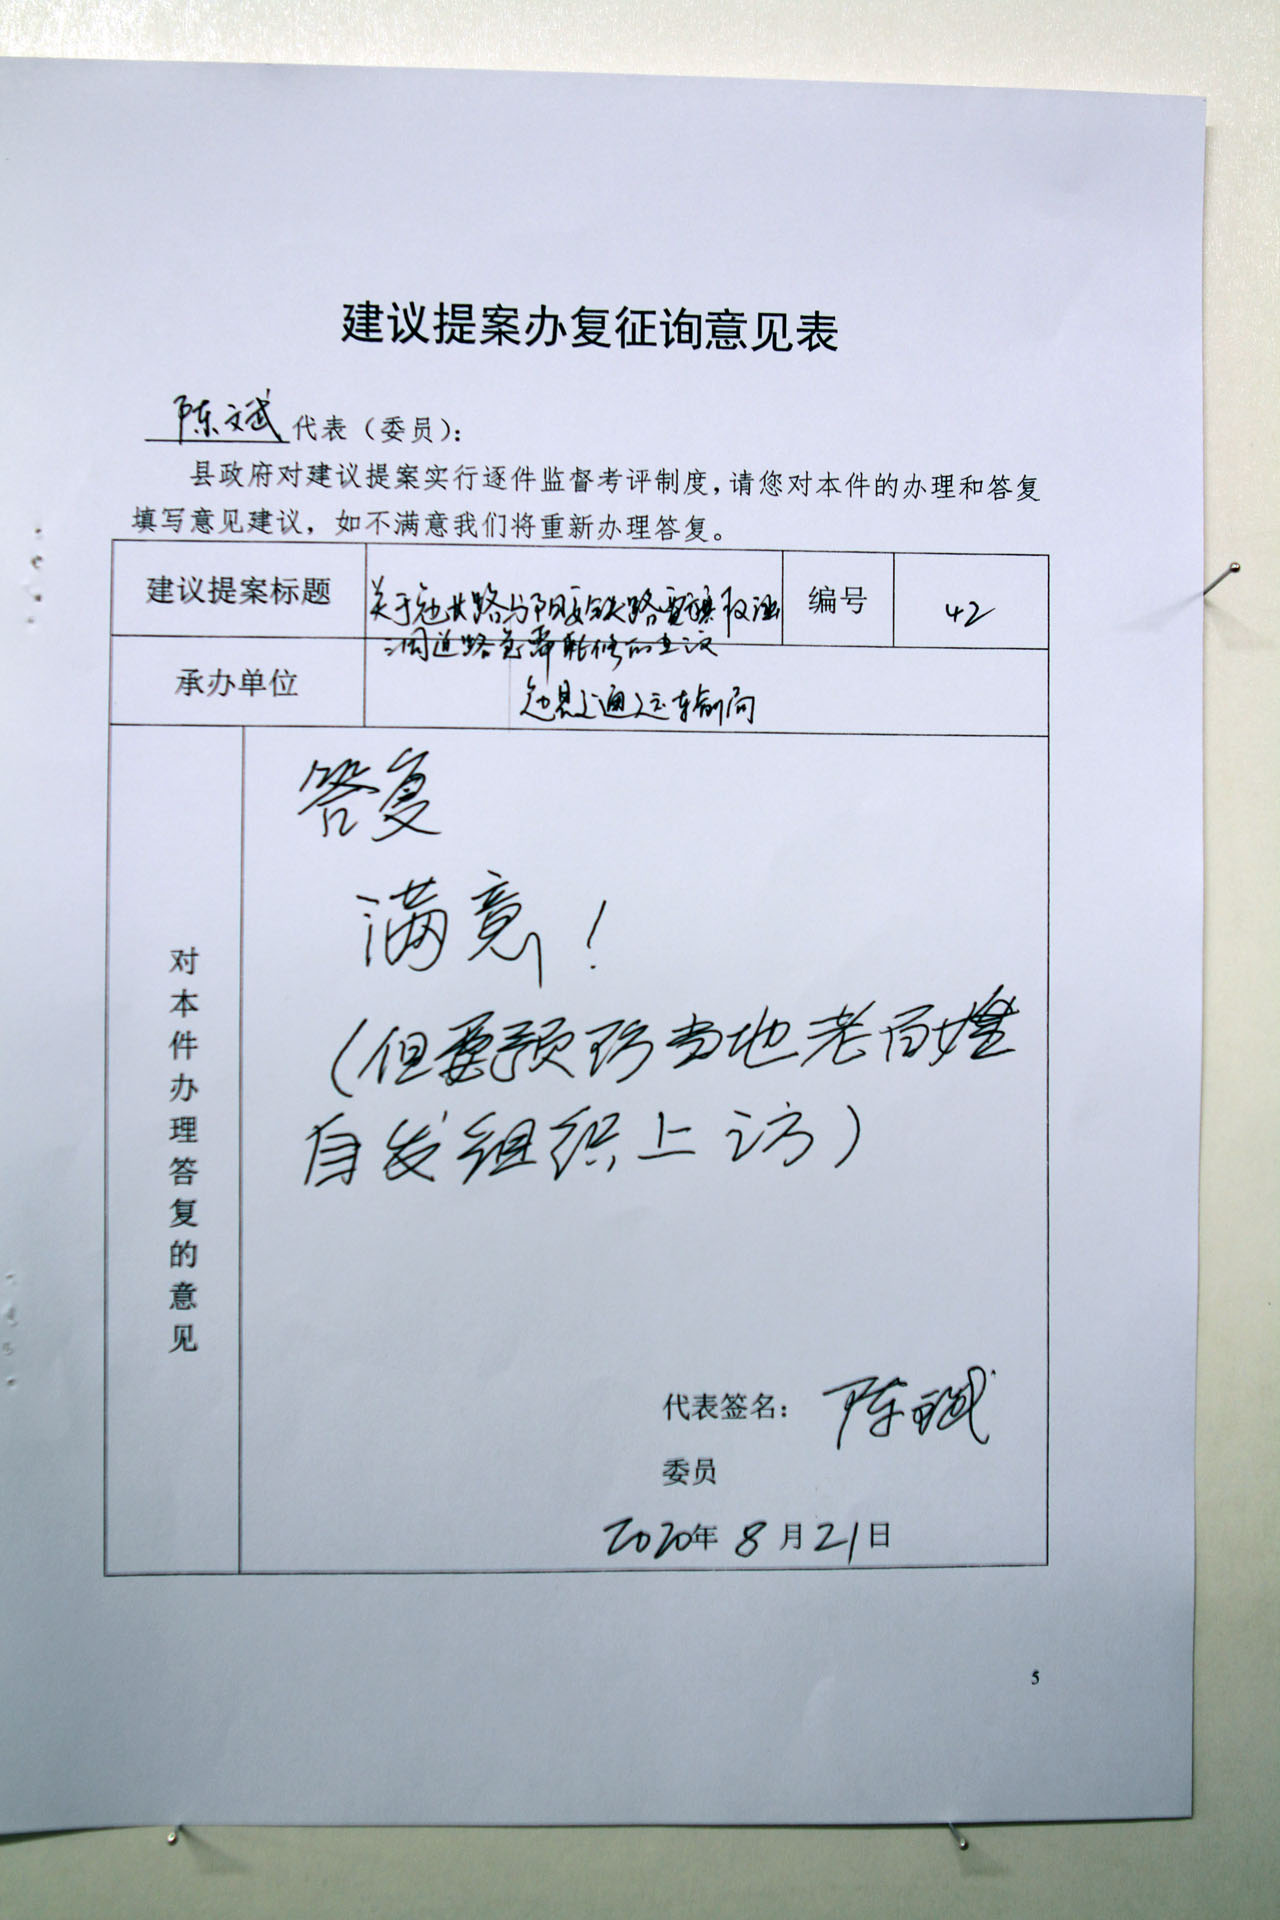 建议提案办复征询意见表
陈文斌代表（委员）：
县政府对建议提案实行逐件监督考评制度，请您对本件的办理和答复
填写意见建议，如不满意我们将重新办理答复。
建议提案标题
关于勉 路与阳安铁路
道路 的建议
编号
42
承办单位
勉县交通运输局
对本件办理答复的意见
答复
满意！
（但要预防当地老百姓
自发组织上访）
代表签名：陈文斌
委员
2020年8月21日
5